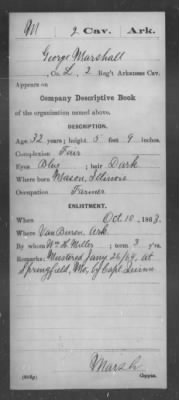 M 2 Cav. Ark.
George Marshall
Co. L, 2 Reg't Arkansas Cav.
Appears on
Company Descriptive Book
of the organization named above.
DESCRIPTION.
Age 32 years; height 5 feet 9 inches.
Complexion Fair
Eyes Blue; hair Dark
Where born Mason, Illinois
Occupation Farmer
ENLISTMENT.
When Oct 10, 1863.
Where Van Buren, Ark.
By whom Wm H. Miller; term 3 y'rs.
Remarks: Mustered Jany 26/64, at
Springfield, Mo, by Capt
Marsh
Copyist.